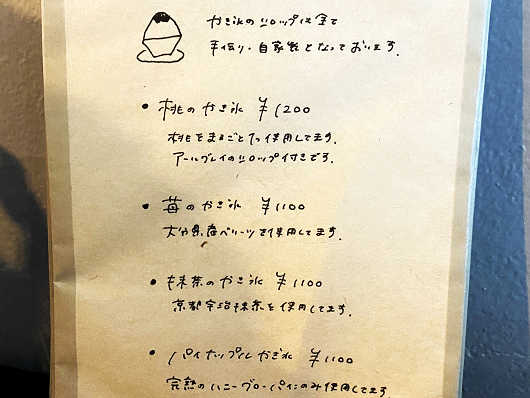 かき氷のシロップは全て
手作り・自家製となっております。
• 桃のかき氷 ¥1200
桃をまるごと1つ使用してます。
アールグレイのシロップ付きです。
• 苺のかき氷 ¥1100
大分県産ベリーツを使用してます。
• 抹茶のかき氷 ¥1100
京都宇治抹茶を使用してます。
• パイナップルかき氷 ¥1100
完熟のハニーグローパインのみ使用してます